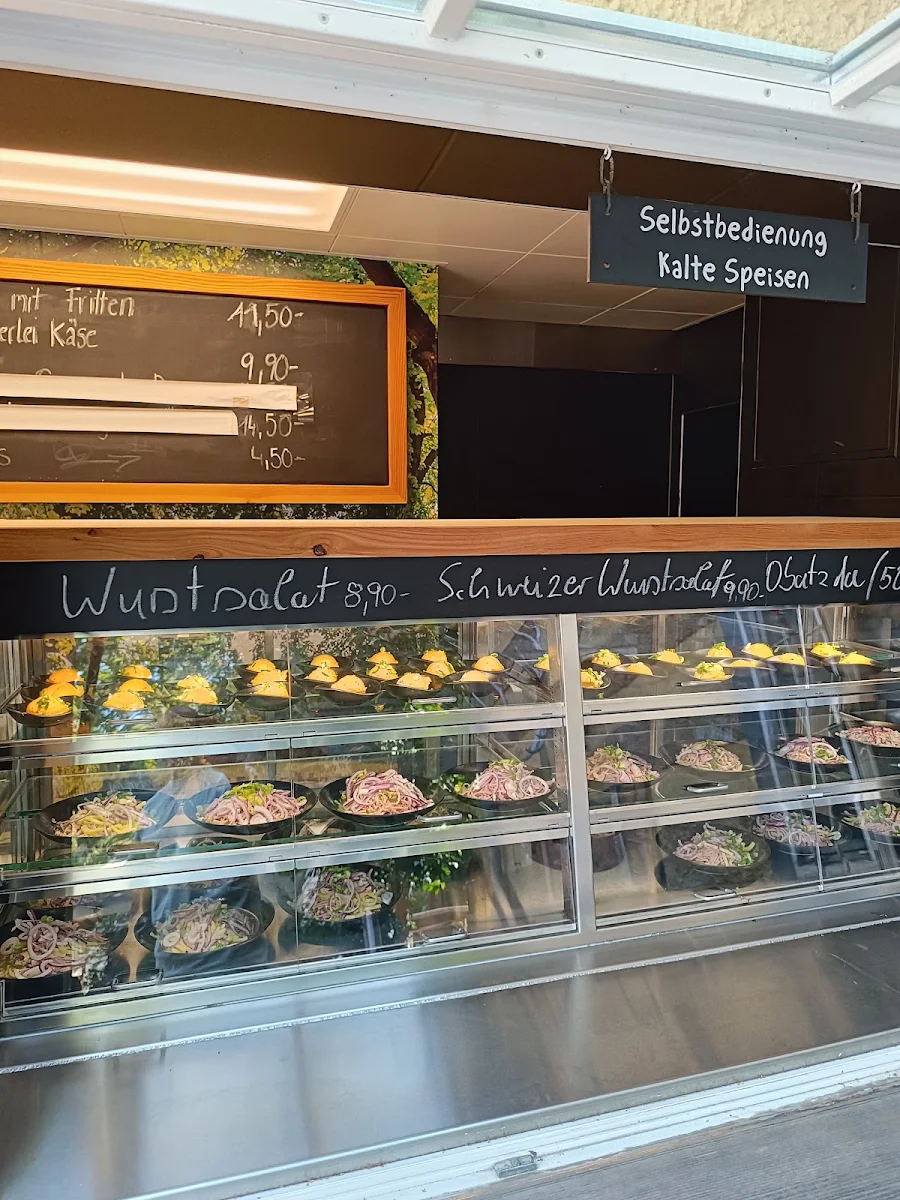 Selbstbedienung
Kalte Speisen
mit Fritten 11,50-
erlei Käse
9,90-
14,50-
s 4,50-
Wurstsalat 8,90- Schweizer Wurstsalat 9,90- Obatzda